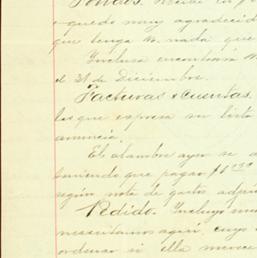 Fondos. Recibí en p
o quedo muy agradecid
que tenga Vd. nada que
Inclusa encontrará V
el 31 de Diciembre.
Facturas & cuentas.
las que expresa su lista
anuncia.
El alambre ayer se a
teniendo que pagar $1
según nota de gasto adju
Pedido. Incluyo nue
necesitamos aquí, cuyo
ordenar si ella merece